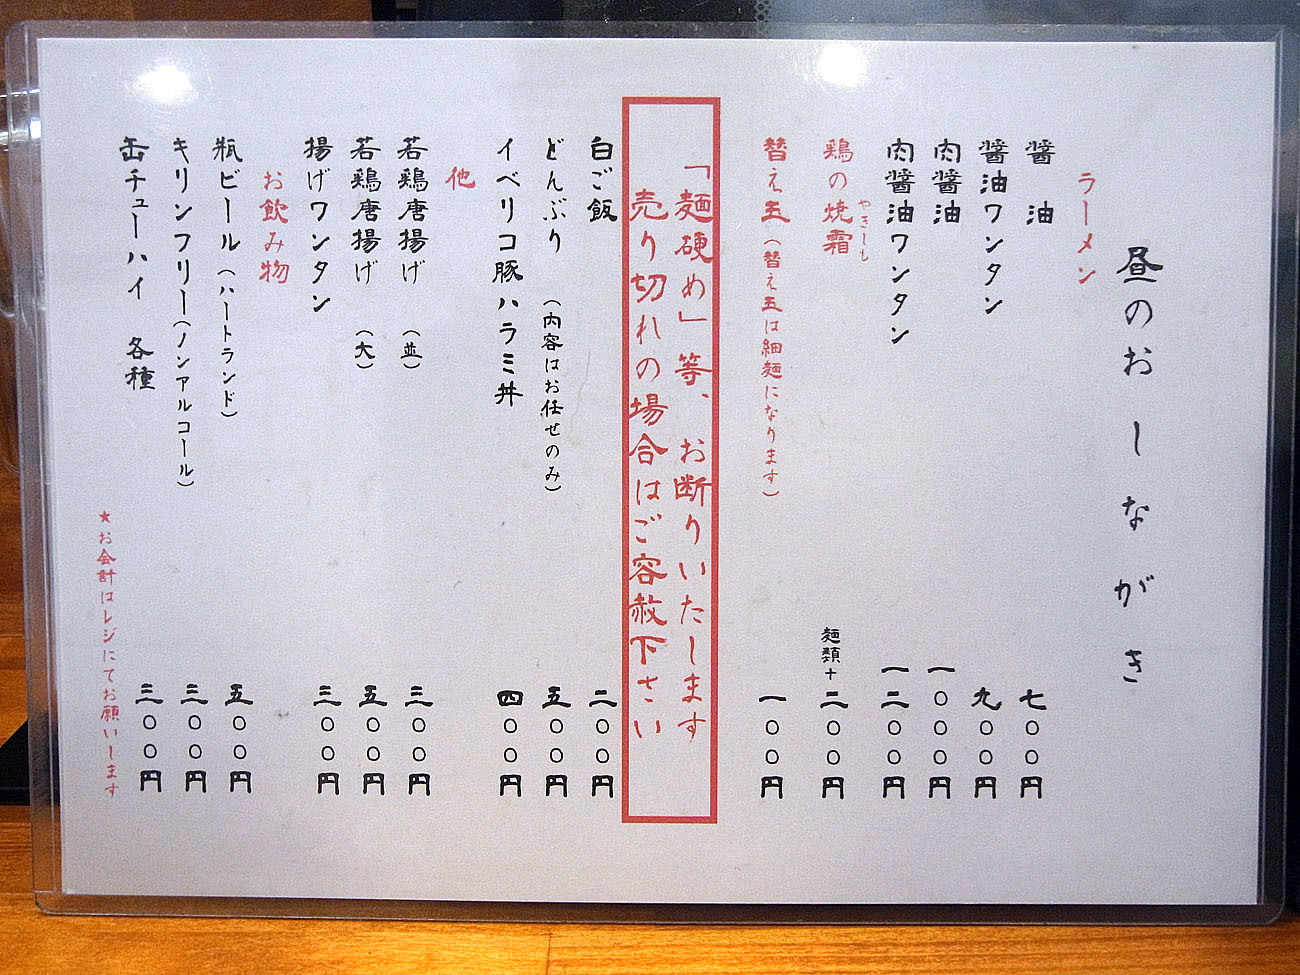 昼のおしながき
ラーメン
醤油 七〇〇円
醤油ワンタン 九〇〇円
肉醤油 一〇〇〇円
肉醤油ワンタン 一二〇〇円
やきしも
鶏の焼霜 麺類+二〇〇円
替え玉(替え玉は細麺になります) 一〇〇円
「麺硬め」等、お断りいたします
売り切れの場合はご容赦下さい
白ご飯 二〇〇円
どんぶり (内容はお任せのみ) 五〇〇円
イベリコ豚ハラミ丼 四〇〇円
他
若鶏唐揚げ (並) 三〇〇円
若鶏唐揚げ (大) 五〇〇円
揚げワンタン 三〇〇円
お飲み物
瓶ビール(ハートランド) 五〇〇円
キリンフリー(ノンアルコール) 三〇〇円
缶チューハイ 各種 三〇〇円
★お会計はレジにてお願いします